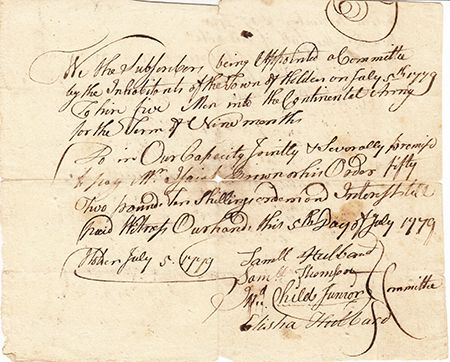 We the Subscribers being Appointed a Committee
by the Inhabitants of the Town of Holden on July 5th 1779
To hire five Men into the Continental Army
for the Term of Nine months
Do in Our Capacity Jointly & Severally promise
to pay Mr or his Order fifty
Two pounds Ten Shillings on demand Interest till
paid Witness Our hands this 5th Day of July 1779
Holden July 5. 1779
Samll Hubbard
Samll Thompson
Childs Junior
Committee
Elisha Hubbard